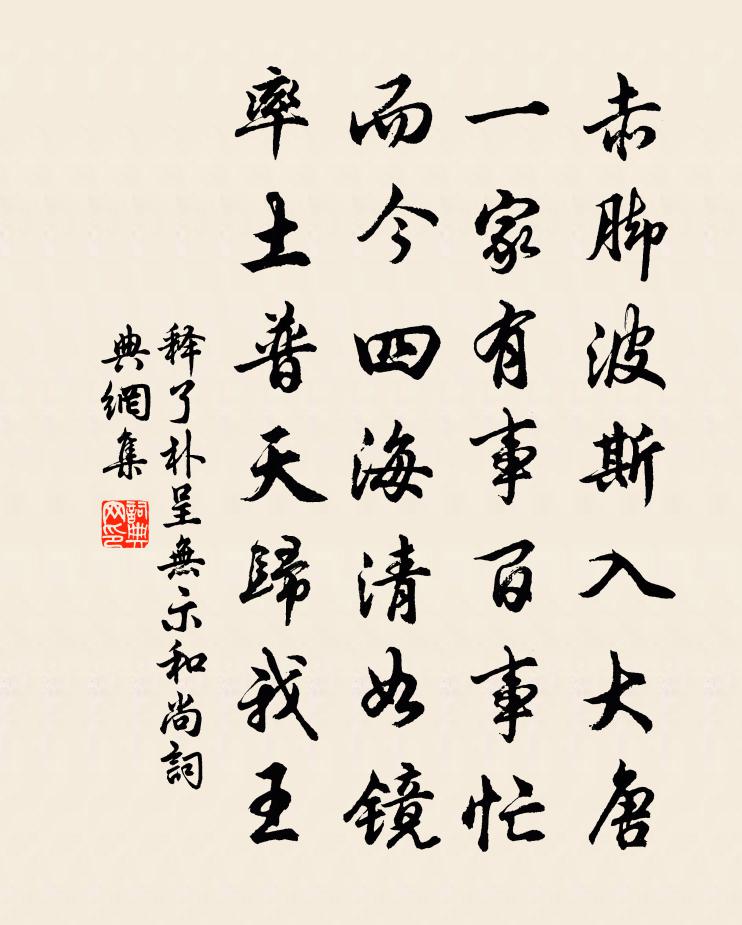 赤脚波斯入大唐
一家有事百事忙
而今四海清如镜
率土普天歸我王
释了朴呈無示和尚詞
典網集
詞典
网印